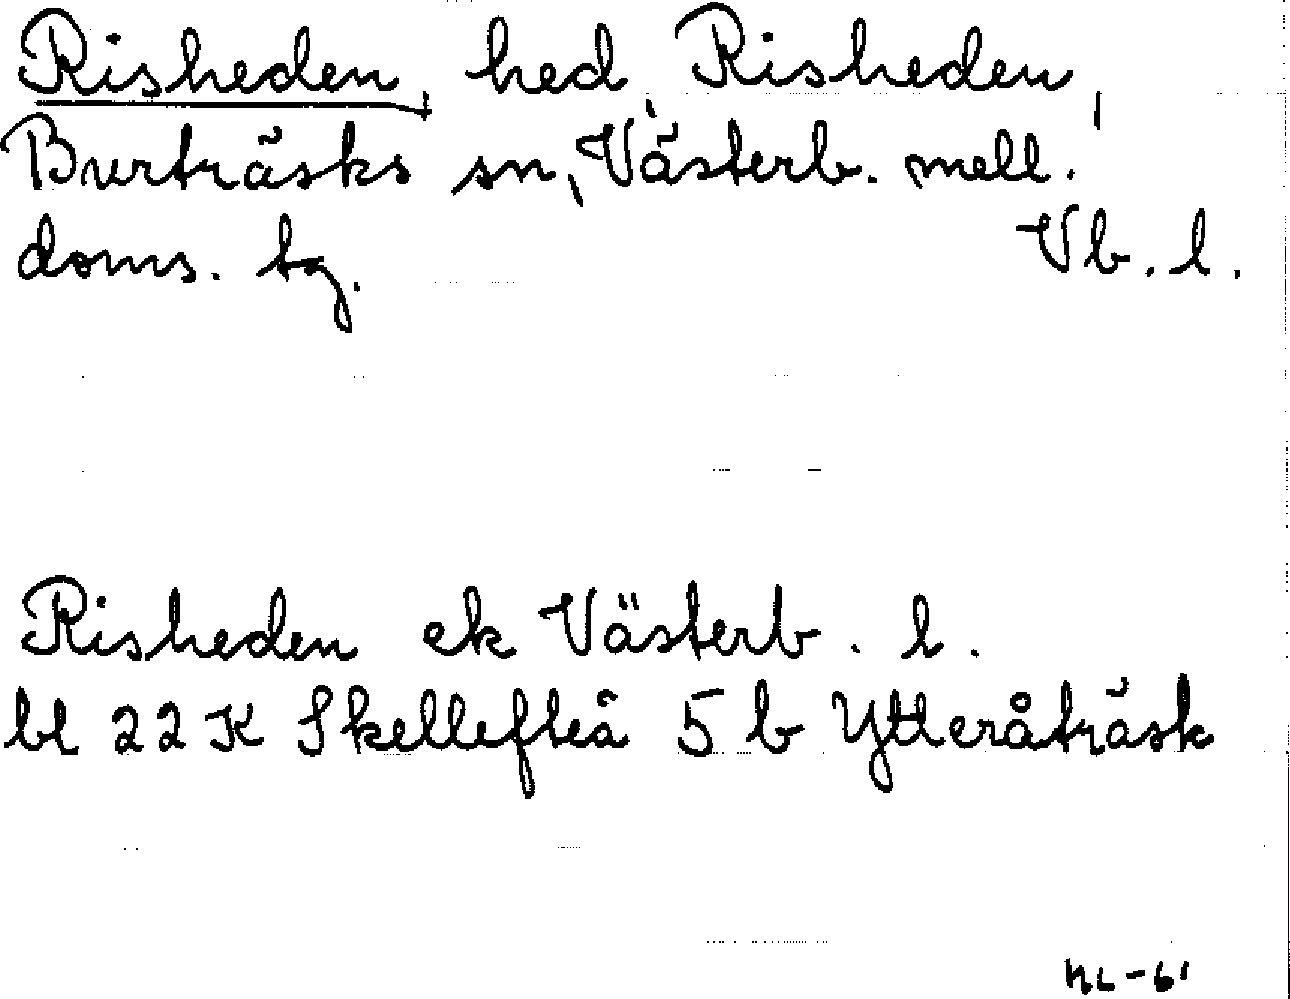 Risheden, hed, Risheden,
Burträsks sn, Västerb. mell.
doms. tg. Vb. l.
Risheden ek Västerb. l.
bl 22 K Skellefteå 5 b Ytteråträsk
NL-61